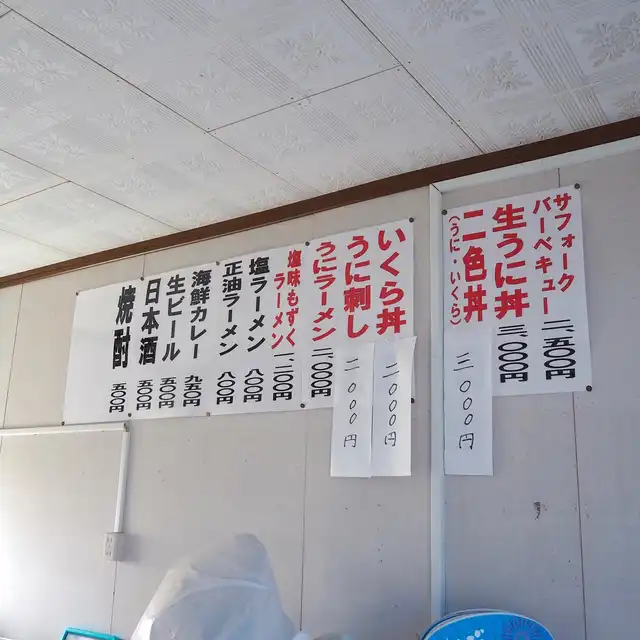 サフォーク
バーベキュー 二、五〇〇円
生うに丼 三、〇〇〇円
二色丼
(うに・いくら)
三〇〇〇円
いくら丼
二〇〇〇円
うに刺し
二〇〇〇円
うにラーメン 二、〇〇〇円
塩味もずく
ラーメン 一、二〇〇円
塩ラーメン 八〇〇円
正油ラーメン 八〇〇円
海鮮カレー 九五〇円
生ビール 五〇〇円
日本酒 五〇〇円
焼酎 五〇〇円